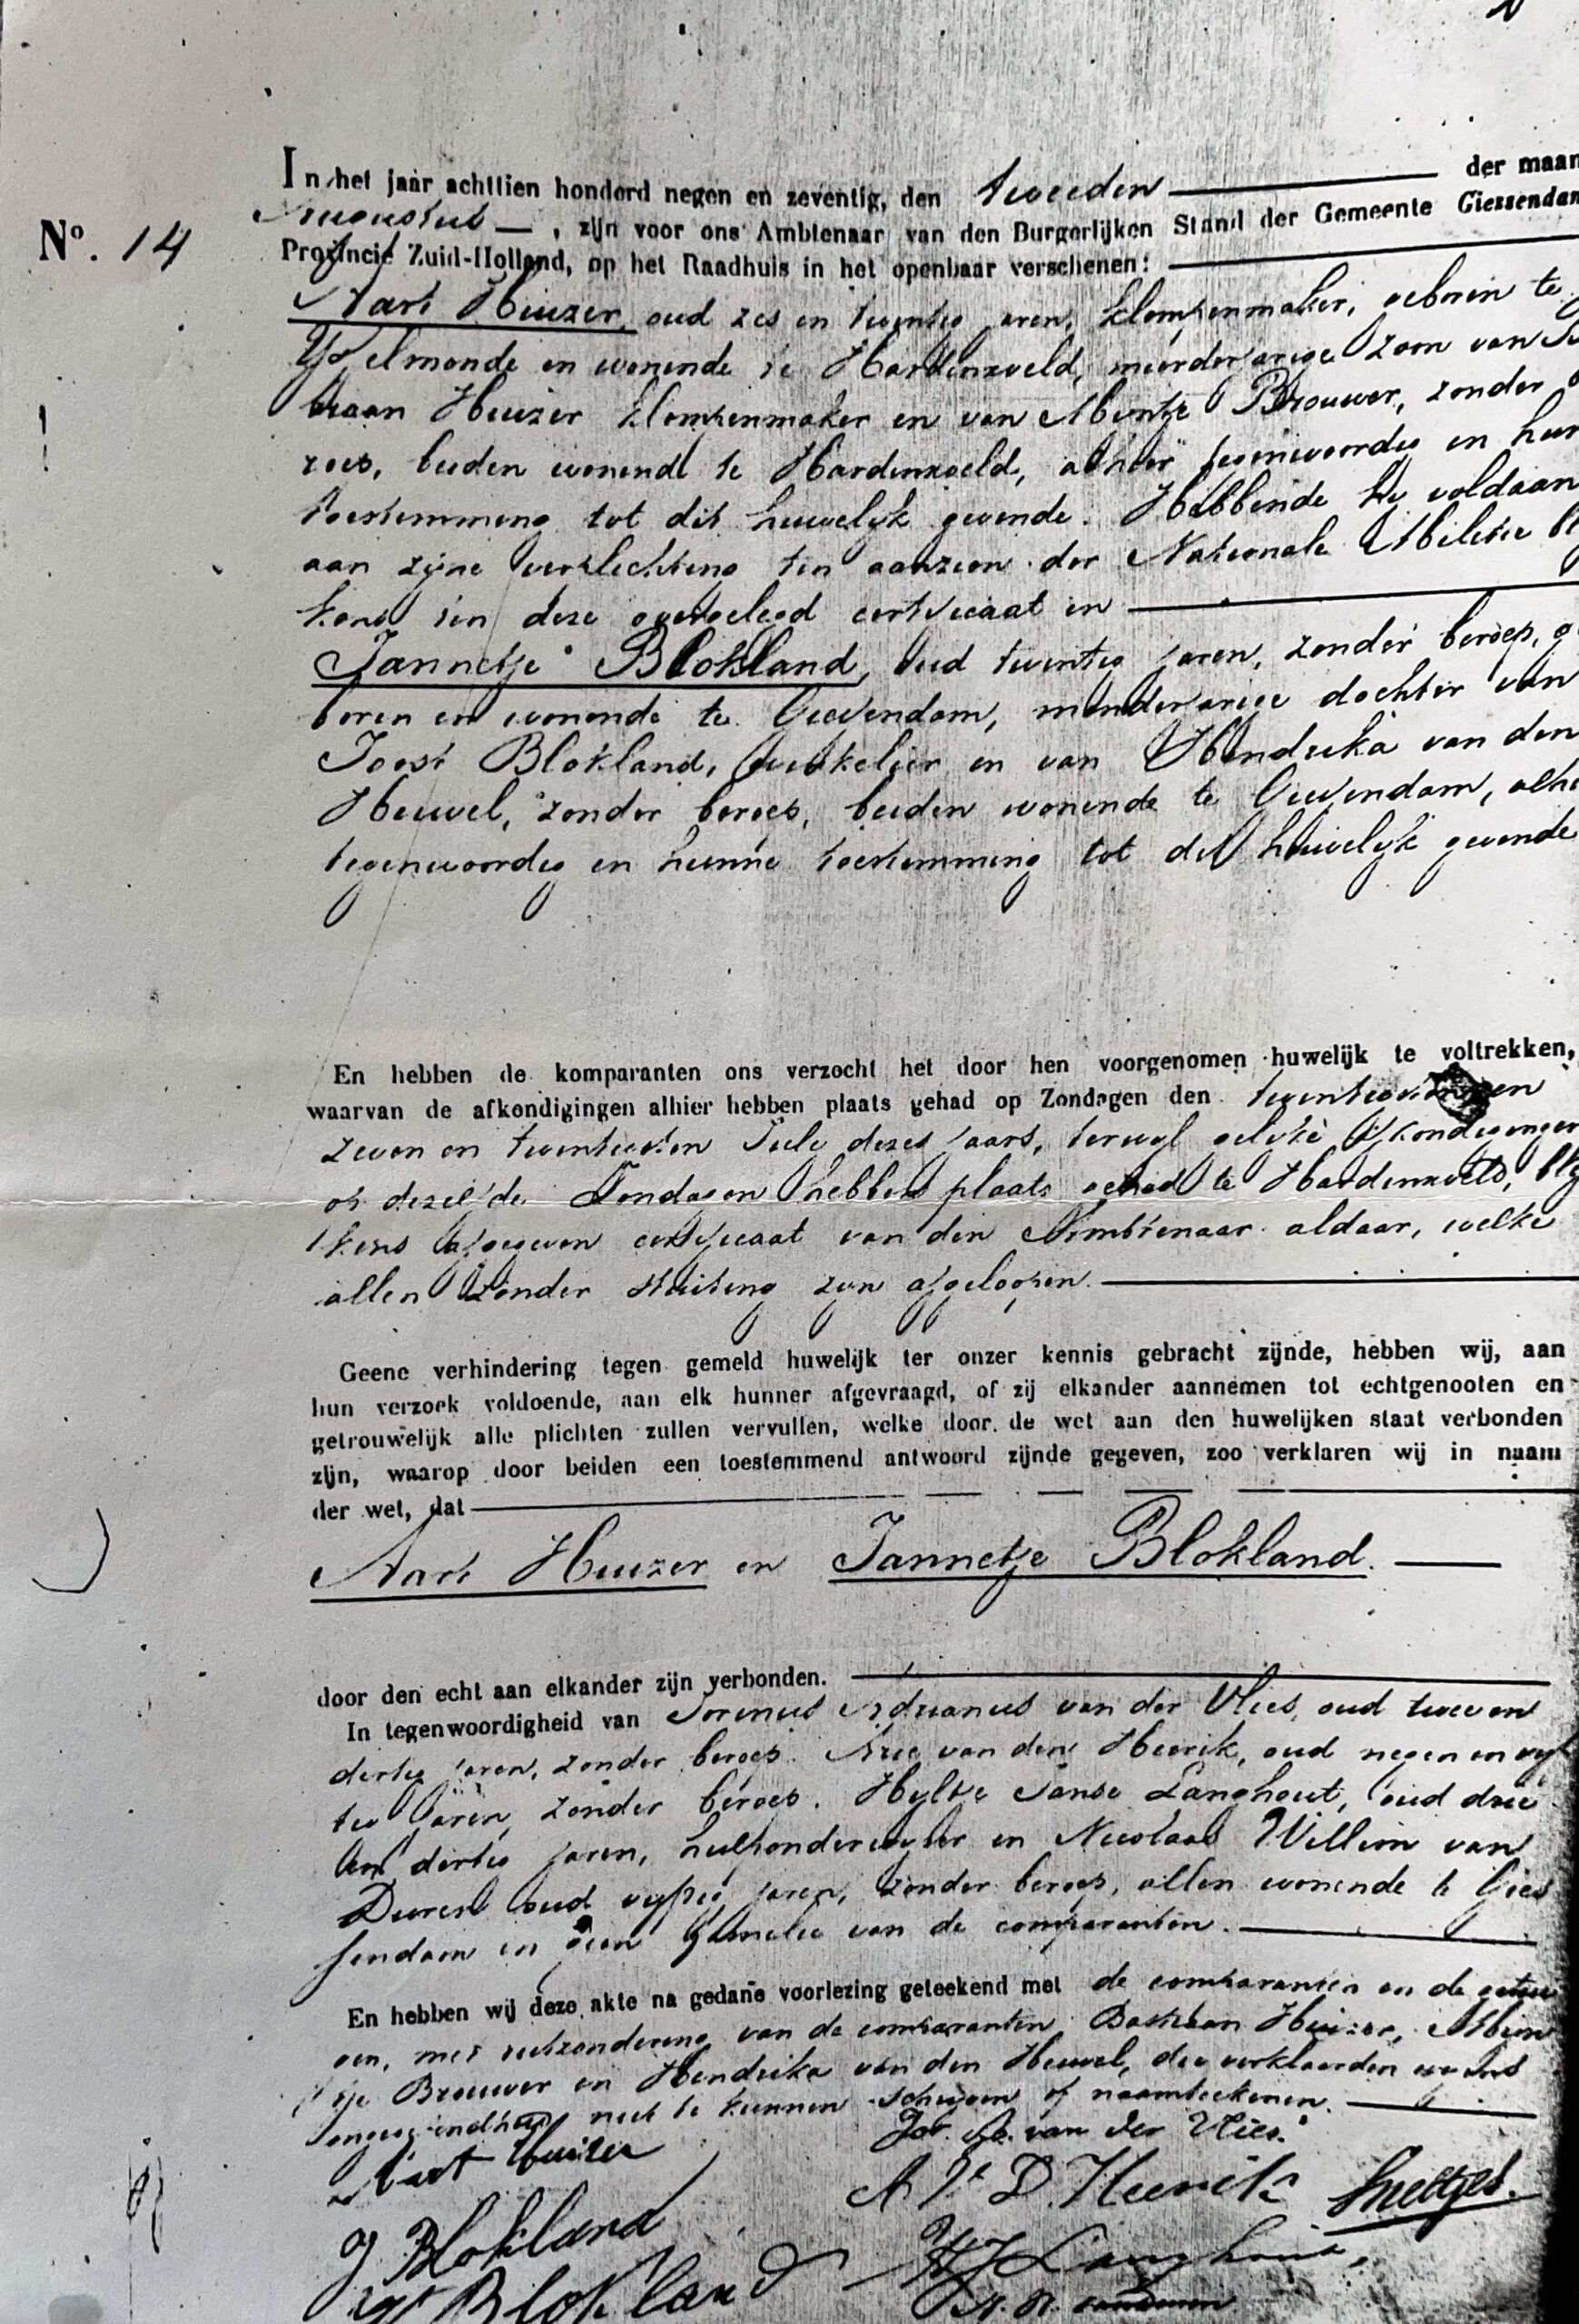 In het jaar achttien honderd negen en zeventig, den tweeden der maan
Augustus, zijn voor ons Ambtenaar van den Burgerlijken Stand der Gemeente Giessendam
No. 14
Provincie Zuid-Holland, op het Raadhuis in het openbaar verschenen:
Aart Huizer, oud zes en twintig jaren, klompenmaker, geboren te
IJsselmonde en wonende te Hardinxveld, meerderjarige zoon van
tiaan Huizer klompenmaker en van Mentje Brouwer, zonder
roep, beiden wonende te Hardinxveld, alhier tegenwoordig en hun
toestemming tot dit huwelijk gevende. Hebbende hij voldaan
aan zijne verplichting ten aanzien der Nationale Militie bl
kens een deze overgelegd certificaat en
Jannetje Blokland, oud twintig jaren, zonder beroep, g
boren en wonende te Giessendam, minderjarige dochter van
Joost Blokland, winkelier en van Hendrika van den
Heuvel, zonder beroep, beiden wonende te Giessendam, alhi
tegenwoordig en hunne toestemming tot dit huwelijk gevende
En hebben de komparanten ons verzocht het door hen voorgenomen huwelijk te voltrekken,
waarvan de afkondigingen alhier hebben plaats gehad op Zondagen den twintigsten en
zeven en twintigsten Juli dezes jaars, terwijl gelijke afkondigingen
op dezelfde Zondagen hebben plaats gehad te Hardinxveld, blij
kens afgegeven certificaat van den Ambtenaar aldaar, welke
allen zonder stuiting zijn afgeloopen.
Geene verhindering tegen gemeld huwelijk ter onzer kennis gebracht zijnde, hebben wij, aan
hun verzoek voldoende, aan elk hunner afgevraagd, of zij elkander aannemen tot echtgenooten en
getrouwelijk alle plichten zullen vervullen, welke door de wet aan den huwelijken staat verbonden
zijn, waarop door beiden een toestemmend antwoord zijnde gegeven, zoo verklaren wij in naam
der wet, dat
Aart Huizer en Jannetje Blokland.
door den echt aan elkander zijn verbonden.
In tegenwoordigheid van Adrianus van der Vlies, oud twee en
dertig jaren, zonder beroep. Arie van den Heuvik, oud negen en vijf
tig jaren, zonder beroep. Hylke Janse Langhout, oud drie
en dertig jaren, hulponderwijzer en Nicolaas Willem van
oud vijftig jaren, zonder beroep, allen wonende te Gies
sendam en geen familie van de comparanten.
En hebben wij deze akte na gedane voorlezing geteekend met de comparanten en de getui
gen, met uitzondering van de comparanten Bastiaan Huizer, Men
tje Brouwer en Hendrika van den Heuvel, die verklaarden
niet te kunnen schrijven of naamteekenen.
Aart Huizer
van der Vlies.
J Blokland
Blokland
Langhout